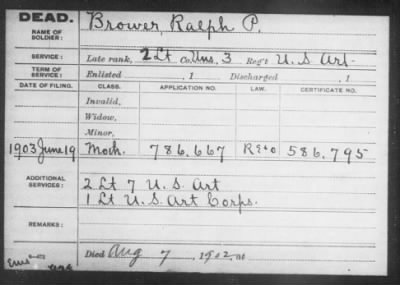 DEAD.
NAME OF SOLDIER: Brower, Ralph P.
SERVICE: Late rank, 2 Lt Co. Uns, 3 Reg't U. S. Art.
TERM OF SERVICE: Enlisted , 1 Discharged , 1
DATE OF FILING. CLASS. APPLICATION NO. LAW. CERTIFICATE NO.
Invalid,
Widow,
Minor,
1903 June 19 Moth. 786,667 586,795
ADDITIONAL SERVICES: 2 Lt 7 U. S. Art
1 Lt U. S. Art Corps.
REMARKS:
Died Aug 7, 1902,